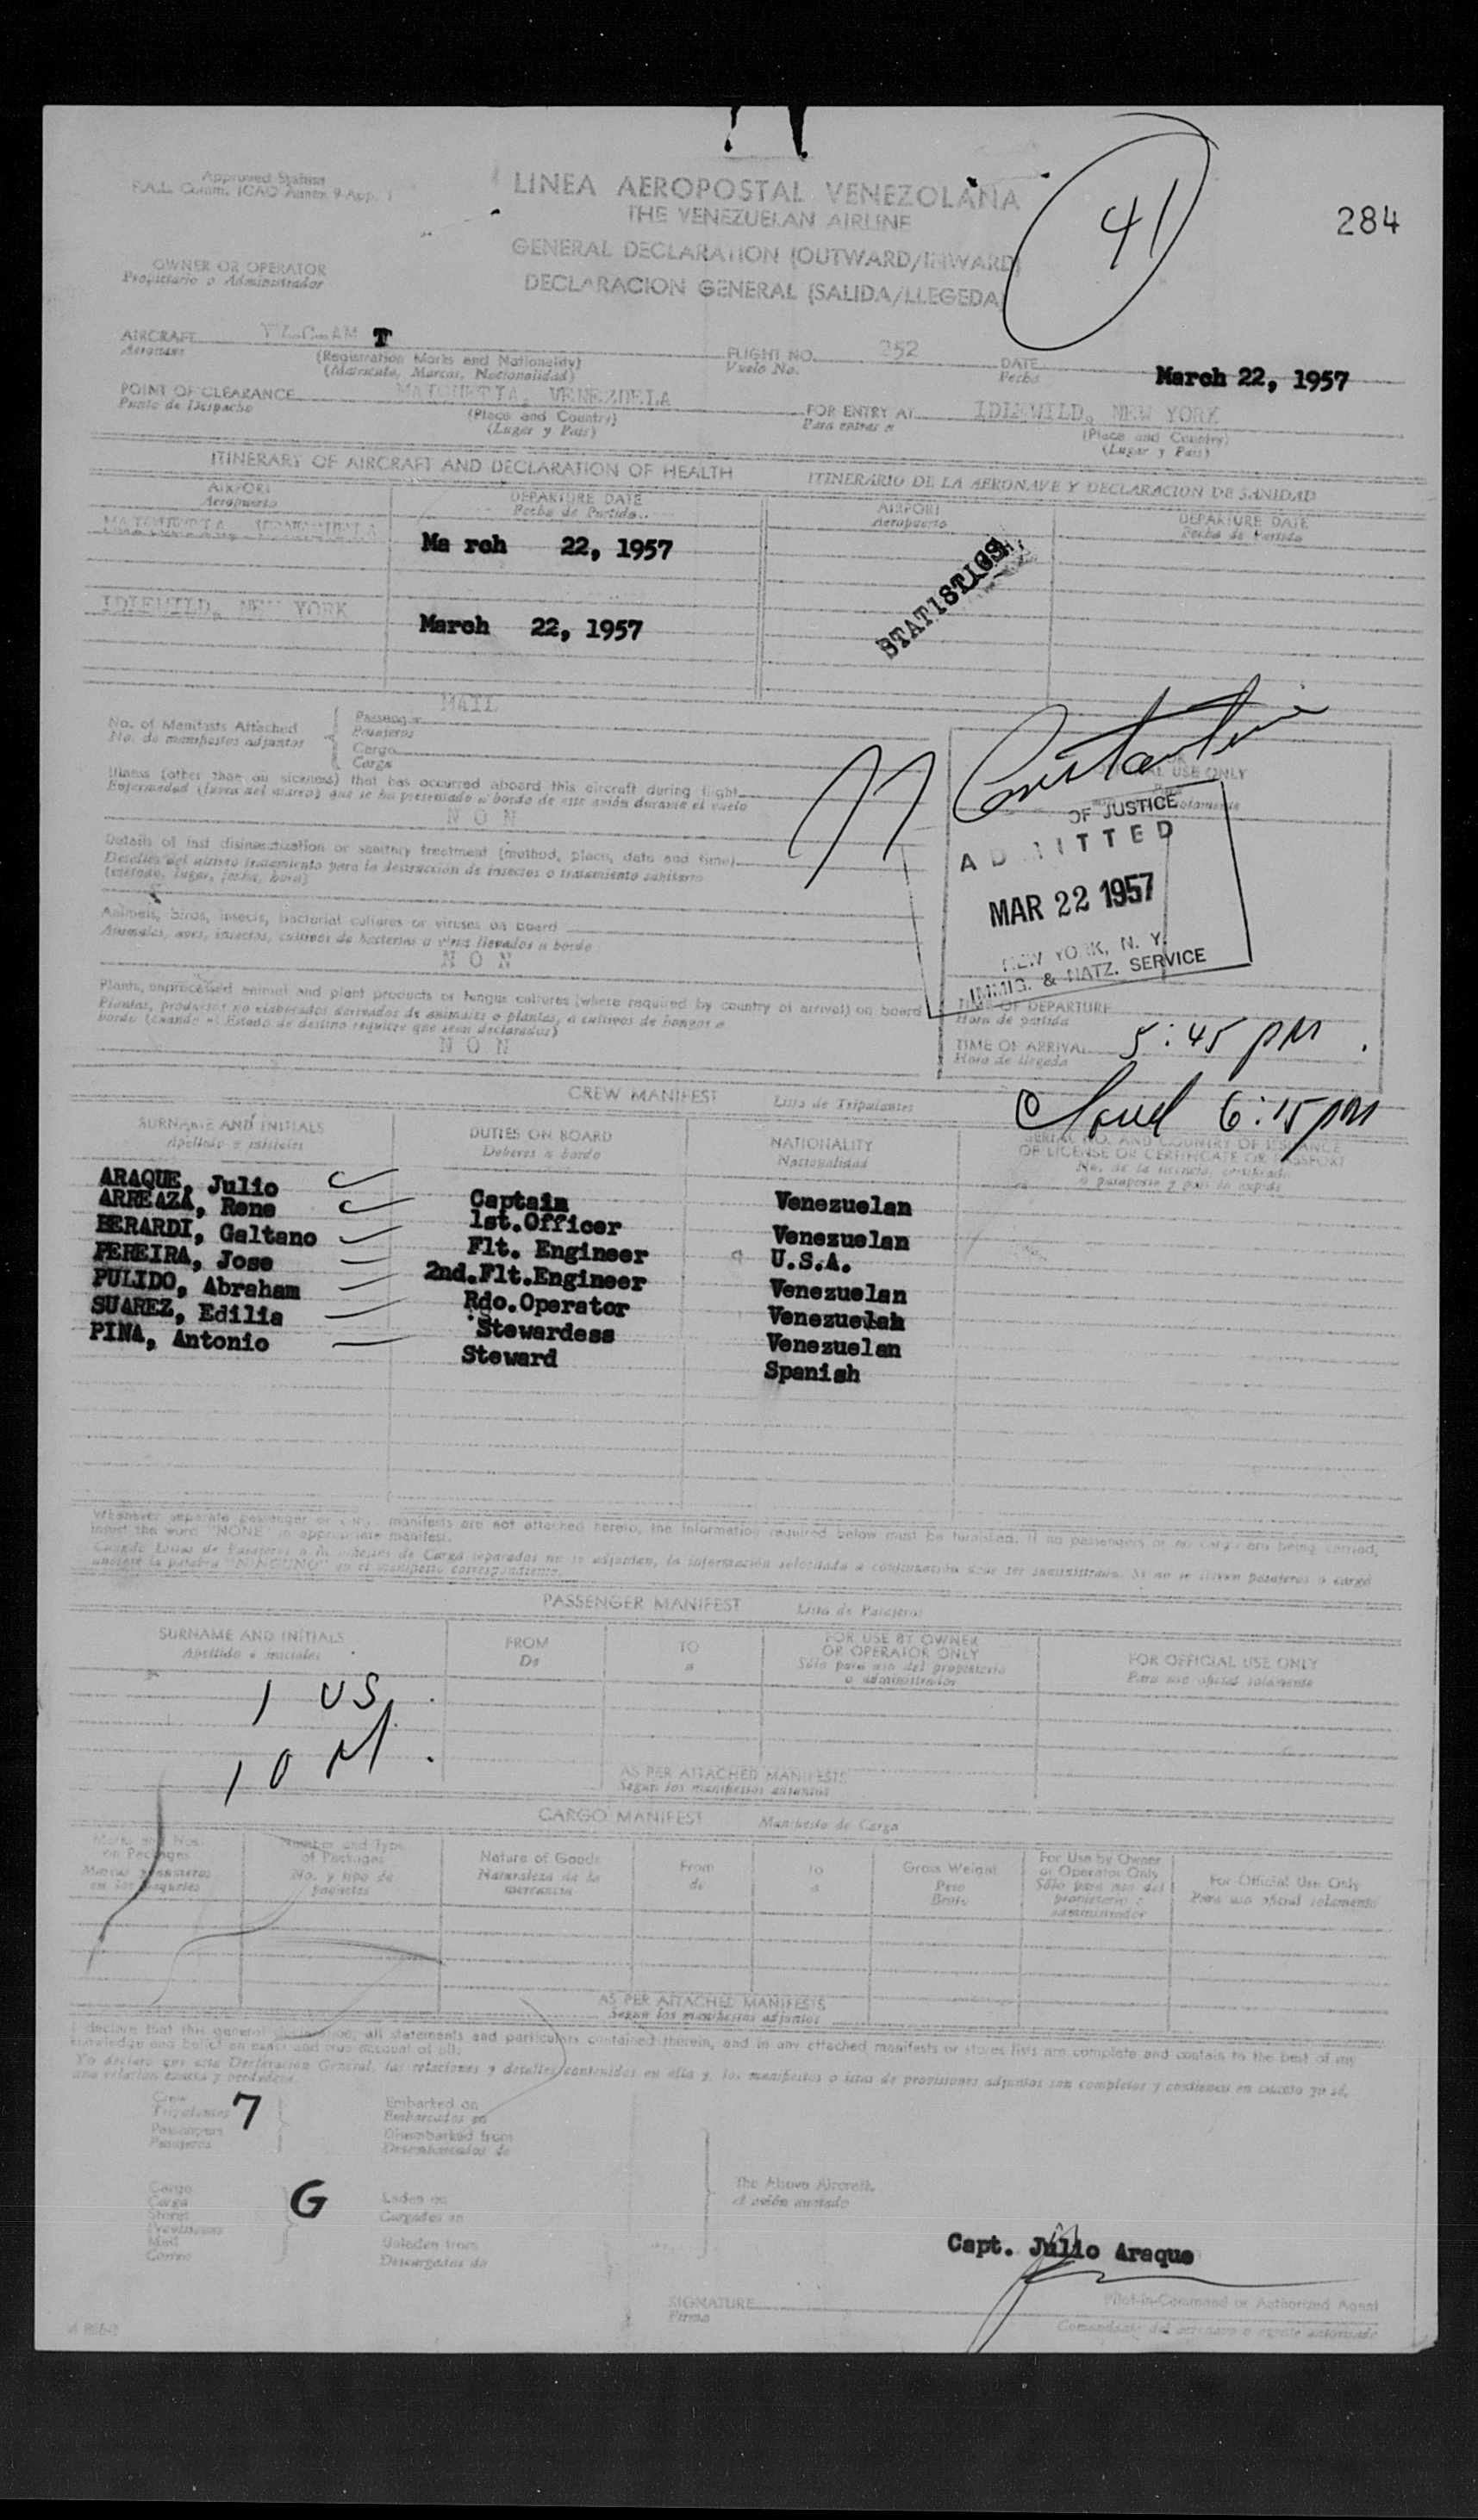 Approved System
F.A.L. Comm. ICAO Annex 9-App. 1
LINEA AEROPOSTAL VENEZOLANA
THE VENEZUELAN AIRLINE
GENERAL DECLARATION (OUTWARD/INWARD)
DECLARACION GENERAL (SALIDA/LLEGEDA)
41
284
OWNER OR OPERATOR
Propietario o Administrador
AIRCRAFT T
Aeronave
(Registration Marks and Nationality)
(Matricula, Marcas, Nacionalidad)
FLIGHT NO. 352
Vuelo No.
DATE March 22, 1957
Fecha
POINT OF CLEARANCE MAIQUETIA, VENEZUELA
Punto de Despacho
(Place and Country)
(Lugar y Pais)
FOR ENTRY AT IDLEWILD, NEW YORK
Para entrar a
(Place and Country)
(Lugar y Pais)
ITINERARY OF AIRCRAFT AND DECLARATION OF HEALTH ITINERARIO DE LA AERONAVE Y DECLARACION DE SANIDAD
AIRPORT DEPARTURE DATE AIRPORT DEPARTURE DATE
Aeropuerto Fecha de Partida Aeropuerto Fecha de Partida
MAIQUETIA, VENEZUELA Ma roh 22, 1957
STATISTICS
IDLEWILD, NEW YORK March 22, 1957
MAIL
No. of Manifests Attached
No. de manifiestos adjuntos
Passenger
Pasajeros
Cargo
Carga
Illness (other than air sickness) that has occurred aboard this aircraft during flight
Enfermedad (fuera del mareo) que se ha presentado a bordo de este avión durante el vuelo
N O N
Details of last disinsectization or sanitary treatment (method, place, date and time)
Detalles del ultimo tratamiento para la destrucción de insectos o tratamiento sanitario
(metodo, lugar, fecha, hora)
Animals, birds, insects, bacterial cultures or viruses on board
Animales, aves, insectos, cultivos de bacterias o virus llevados a bordo
N O N
Plants, unprocessed animal and plant products or fungus cultures (where required by country of arrival) on board
Plantas, productos no elaborados derivados de animales o plantas, o cultivos de hongos a
bordo (cuando el Estado de destino requiere que sean declarados)
N O N
USE ONLY
OF JUSTICE
ADMITTED
MAR 22 1957
NEW YORK, N. Y.
IMMIG. & NATZ. SERVICE
TIME OF DEPARTURE
Hora de partida
TIME OF ARRIVAL 5:45 PM
Hora de llegada
6:15 PM
CREW MANIFEST Lista de Tripulantes
SURNAME AND INITIALS DUTIES ON BOARD NATIONALITY SERIAL NO. AND COUNTRY OF ISSUANCE
Apellido e iniciales Deberes a bordo Nacionalidad OF LICENSE OR CERTIFICATE OR PASSPORT
No. de la licencia, certificado
o pasaporte y pais lo expide
ARAQUE, Julio Captain Venezuelan
ARREAZA, Rene 1st.Officer Venezuelan
BERARDI, Galtano Flt. Engineer U.S.A.
PEREIRA, Jose 2nd.Flt.Engineer Venezuelan
PULIDO, Abraham Rdo.Operator Venezuelan
SUAREZ, Edilia Stewardess Venezuelan
PINA, Antonio Steward Spanish
Whenever separate passenger or cargo manifests are not attached hereto, the information required below must be furnished. If no passengers or no cargo are being carried,
insert the word "NONE" in appropriate manifest.
PASSENGER MANIFEST Lista de Pasajeros
SURNAME AND INITIALS FROM TO FOR USE BY OWNER FOR OFFICIAL USE ONLY
Apellido e iniciales De a OR OPERATOR ONLY Para uso oficial solamente
Sólo para uso del propietario
o administrador
1 US
10
AS PER ATTACHED MANIFESTS
Segun los manifiestos adjuntos
CARGO MANIFEST Manifiesto de Carga
Marks and Nos. Number and Type Nature of Goods From To Gross Weight For Use by Owner For Official Use Only
on Packages of Packages Naturaleza de la de a Peso or Operator Only Para uso oficial solamente
No. y tipo de mercancia Bruto Sólo para uso del
paquetes propietario o
administrador
AS PER ATTACHED MANIFESTS
Segun los manifiestos adjuntos
I declare that this general declaration, all statements and particulars contained therein, and in any attached manifests or stores lists are complete and contain to the best of my
knowledge and belief an exact and true account of all:
Crew 7 Embarked on
Tripulantes Embarcados en
Passengers Disembarked from
Pasajeros Desembarcados de
The Above Aircraft.
el avión anotado
Cargo G Laden on
Carga Cargados en
Stores
Provisiones
Mail Unladen from
Correo Descargados de
Capt. Julio Araque
SIGNATURE Pilot-in-Command or Authorized Agent
Firma Comandante del aeronave o agente autorizado